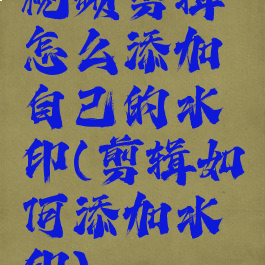 视频剪辑
怎么添加
自己的水
印(剪辑如
何添加水
印)